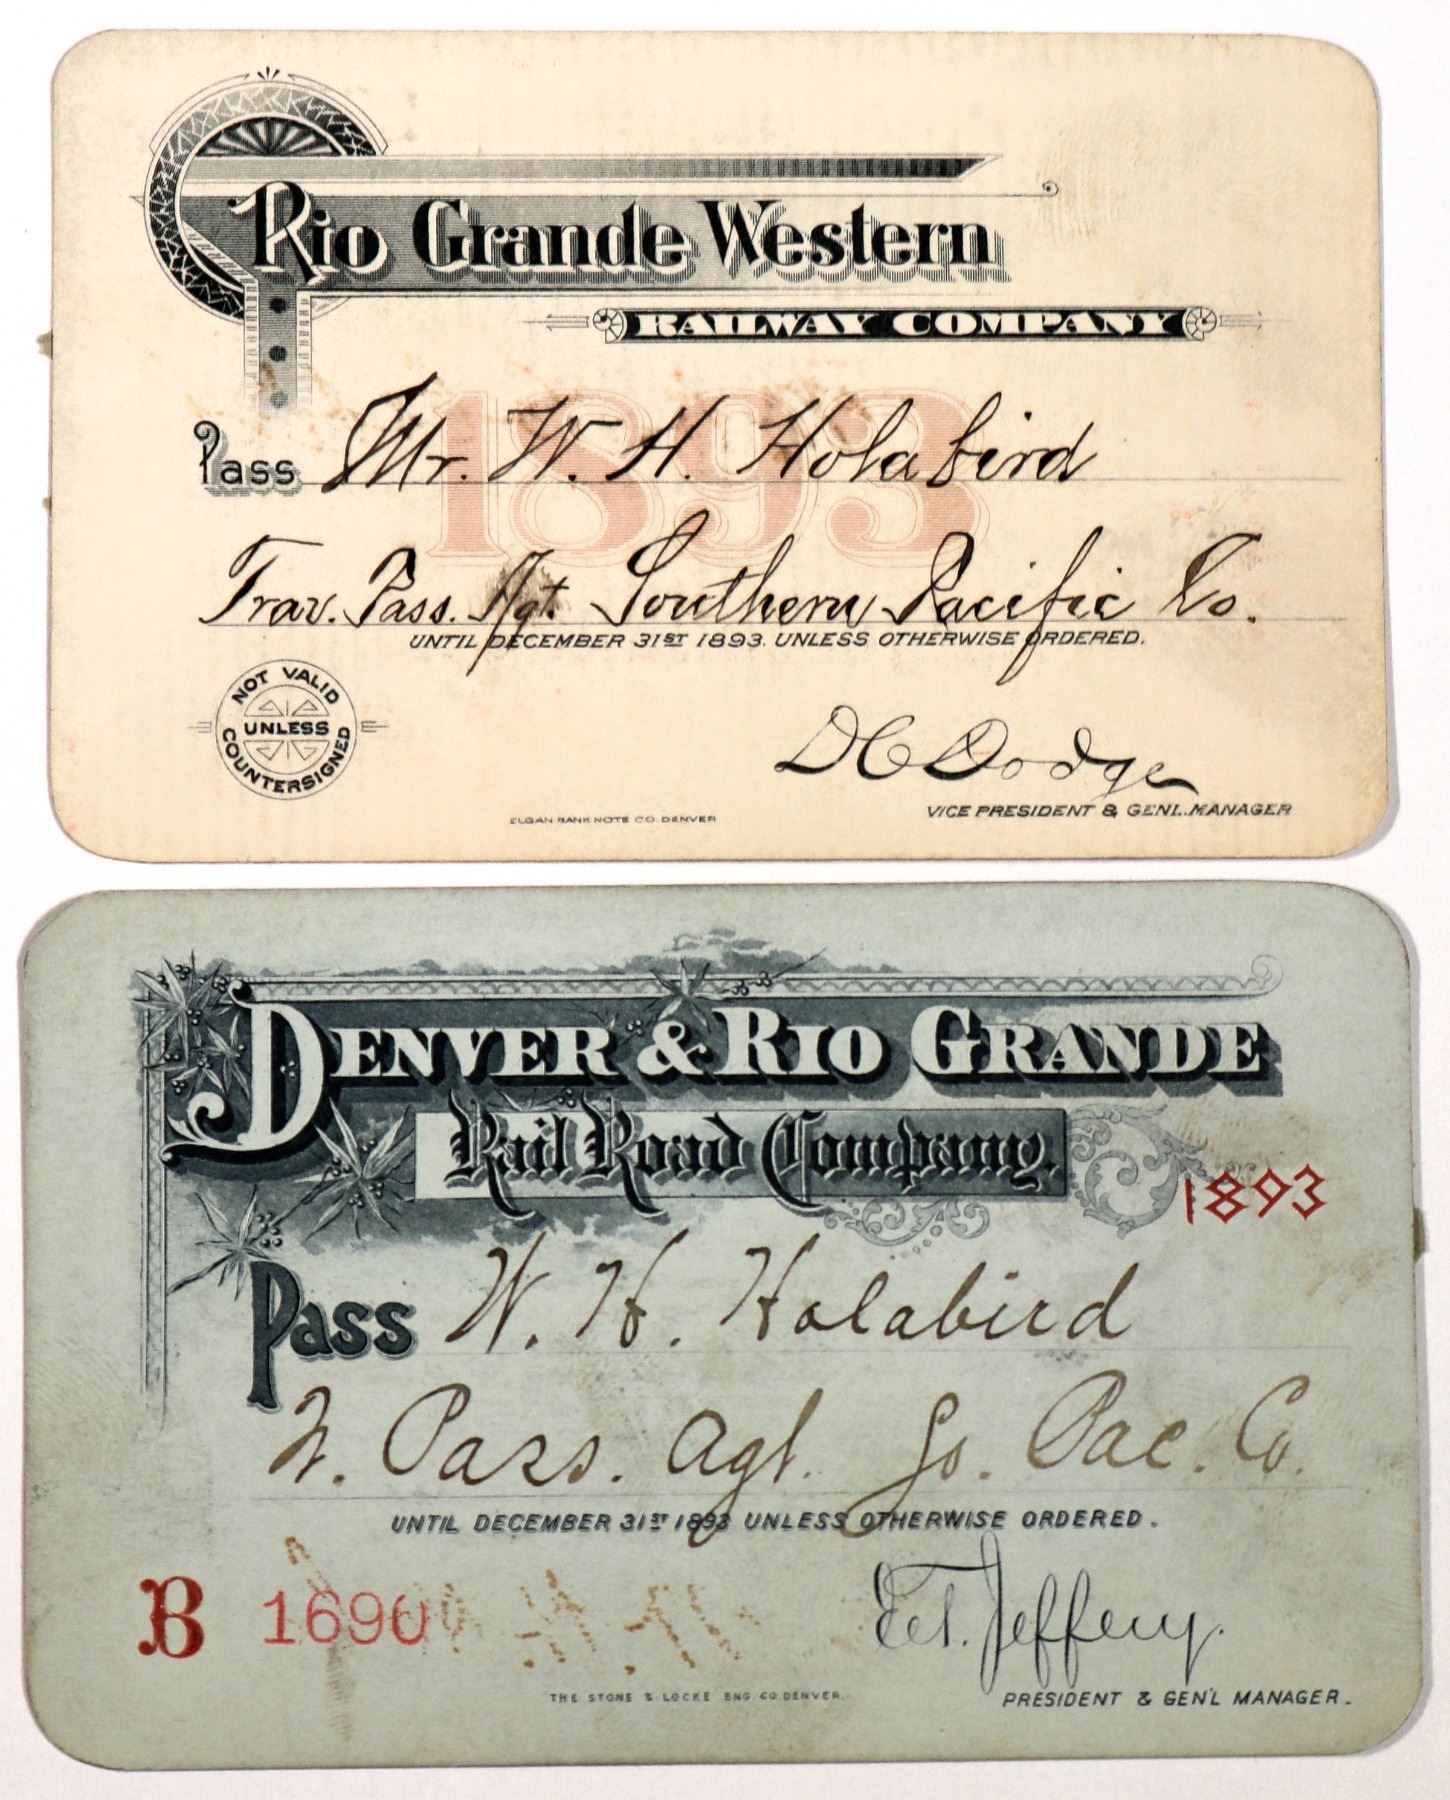 Rio Grande Western
RAILWAY COMPANY
1893
Pass Mr. W. H. Holabird
Trav. Pass. Agt. Southern Pacific Co.
UNTIL DECEMBER 31ST 1893. UNLESS OTHERWISE ORDERED.
NOT VALID
UNLESS
COUNTERSIGNED
D C Dodge
VICE PRESIDENT & GENL. MANAGER
ELGAN BANK NOTE CO. DENVER
DENVER & RIO GRANDE
Rail Road Company.
1893
Pass W. H. Holabird
T. Pass. Agt. So. Pac. Co.
UNTIL DECEMBER 31ST 1893 UNLESS OTHERWISE ORDERED.
B 1690
E.T. Jeffery.
THE STONE & LOCKE ENG. CO. DENVER.
PRESIDENT & GEN'L MANAGER.